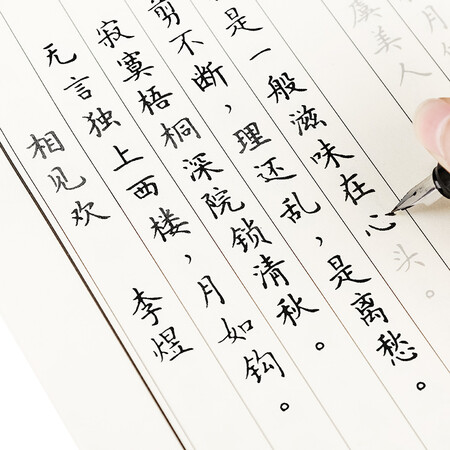 相见欢 李煜
无言独上西楼，月如钩。
寂寞梧桐深院锁清秋。
剪不断，理还乱，是离愁。
是一般滋味在心头。
虞美人
月